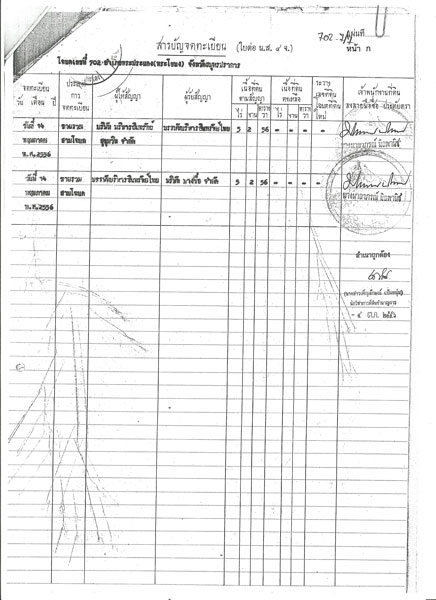 702
สารบัญจดทะเบียน (ใบต่อ น.ส. ๔ จ.) หน้า ก
โฉนดเลขที่ 702 อำเภอพระประแดง(พระโขนง) จังหวัดสมุทรปราการ
จดทะเบียน
วัน เดือน ปี
ประเภท
การ
จดทะเบียน
ผู้ให้สัญญา
ผู้รับสัญญา
เนื้อที่ดิน
ตามสัญญา
ไร่ งาน ตารางวา
เนื้อที่ดิน
คงเหลือ
ไร่ งาน ตารางวา
ระวาง
เลขที่ดิน
โฉนดที่ดิน
ใหม่
เจ้าพนักงานที่ดิน
ลงลายมือชื่อ ประทับตรา
วันที่ 14 ขายรวม บริษัท บริหารสินทรัพย์ บรรษัทบริหารสินทรัพย์ไทย 5 2 56 - - - -
พฤษภาคม สามโฉนด สุขุมวิท จำกัด
พ.ศ.2556
วันที่ 14 ขายรวม บรรษัทบริหารสินทรัพย์ไทย บริษัท บางจื่อ จำกัด 5 2 56 - - - -
พฤษภาคม สามโฉนด
พ.ศ.2556
สำเนาถูกต้อง
นักวิชาการที่ดินชำนาญการ